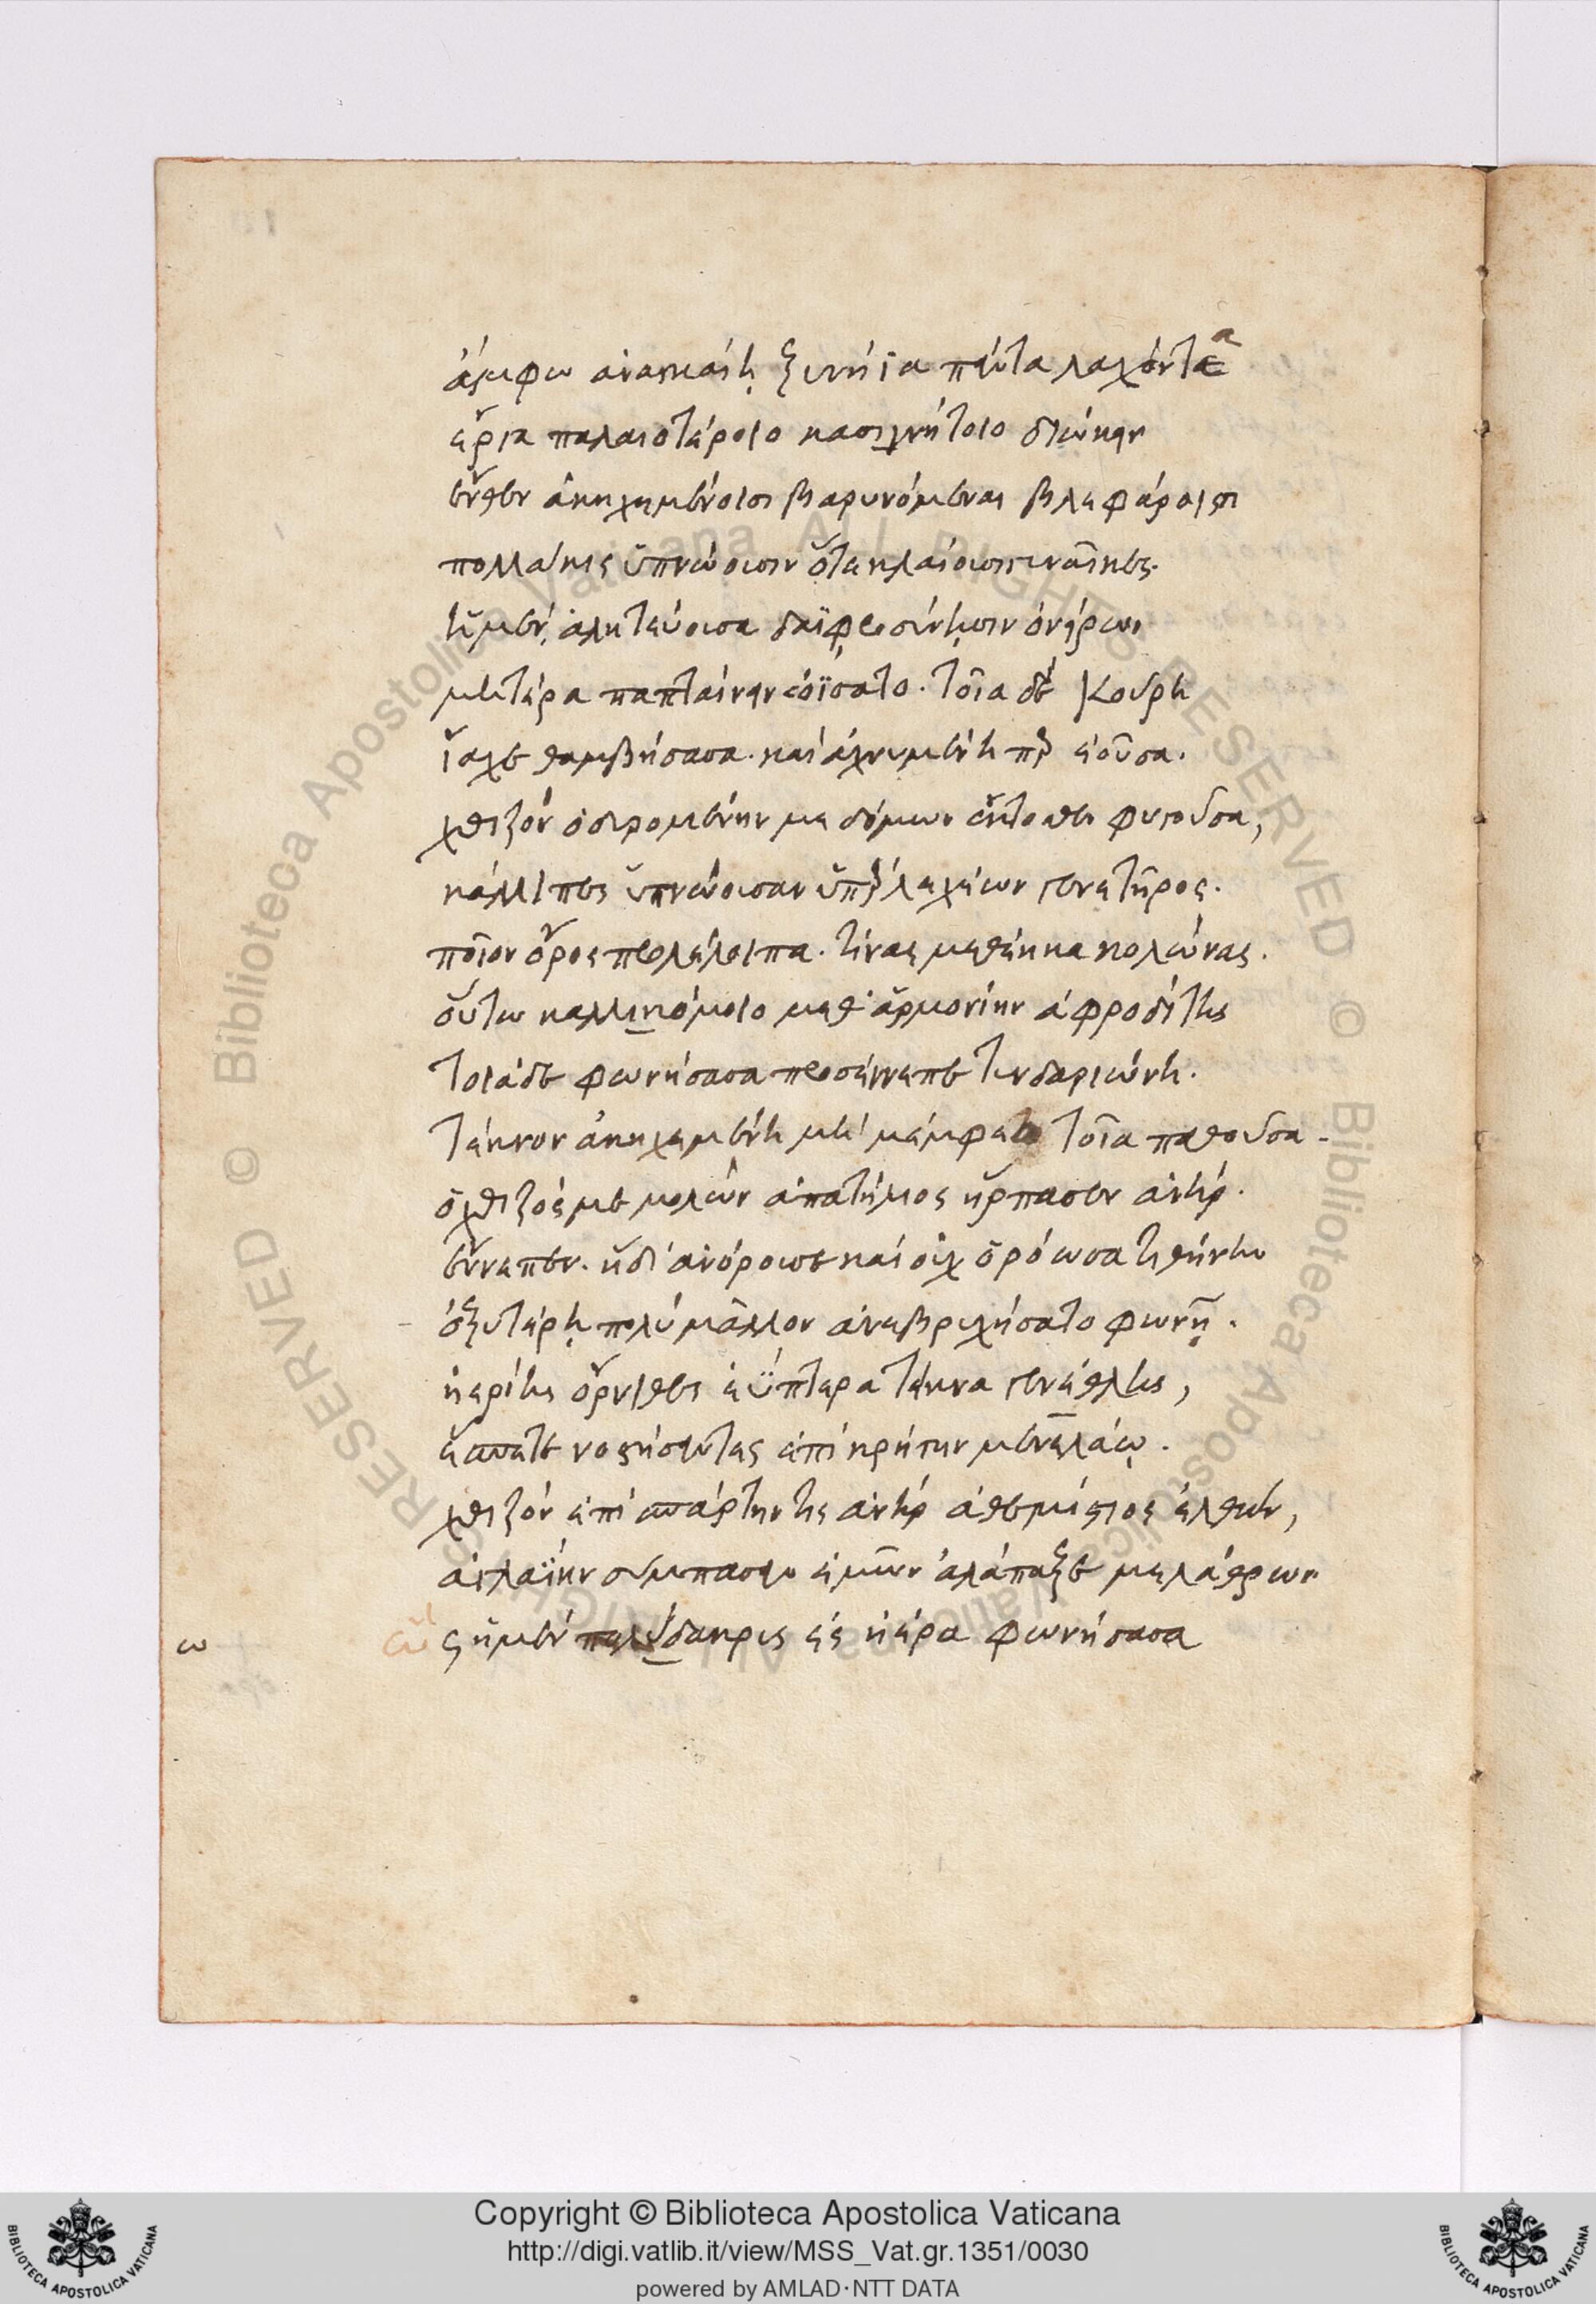 ἄμφω ἀναγκαίη ξυνήϊα πάντα λαχόντα
ἔργα παλαιοτέροιο κασιγνήτοιο διώκειν
ἔνθεν ἀκηχεμένοισι βαρυνόμεναι βλεφάροισι
πολλάκις ὑπνώουσιν ὅτε κλαίουσι γυναῖκες.
ἡ μὲν ἀλητεύουσα δαϊφροσύνῃσιν ὀνείρων
μητέρα παπταίνειν ὀΐσατο. τοῖα δὲ κούρη
ἴαχε θαμβήσασα. καὶ ἀχνυμένη περ ἐοῦσα.
χθιζὸν ὀδυρομένην με δόμων ἔκτοσθεν φυγοῦσα,
κάλλιπες ὑπνώουσαν ὑπὲρ λεχέων γενετῆρος.
ποῖον ὄρος προλέλοιπα. τίνας μεθέηκα κολώνας.
οὕτω καλλικόμοιο μεθ' ἁρμονίην ἀφροδίτης
τοιάδε φωνήσασα προσέννεπε τυνδαρεώνη.
τέκνον ἀκηχεμένη μὴ μέμφεο τοῖα παθοῦσα.
ὁ χθιζός με μολὼν ἀπατήλιος ἥρπασεν ἀνήρ.
ἔννεπεν. ἡ δ' ἀνόρουσε καὶ οὐχ ὁρόωσα τιθήνην
ὀξυτέρῃ πολὺ μᾶλλον ἀνεβρυχήσατο φωνῇ.
ἠερίης ὄρνιθες ἐΰπτερα τέκνα γενέθλης,
ἔσπετε νοστήσαντες ἐπὶ κρήτην μενελάῳ.
χθιζὸν ἐπὶ σπάρτην τις ἀνὴρ ἀθεμίστιος ἐλθὼν,
ἀγλαΐην σύμπασαν ἐμῶν ἀλάπαξε μελάθρων
ω ὣς ἡ μὲν πολύδακρυς ἐς ἠέρα φωνήσασα
Copyright © Biblioteca Apostolica Vaticana
http://digi.vatlib.it/view/MSS_Vat.gr.1351/0030
powered by AMLAD·NTT DATA